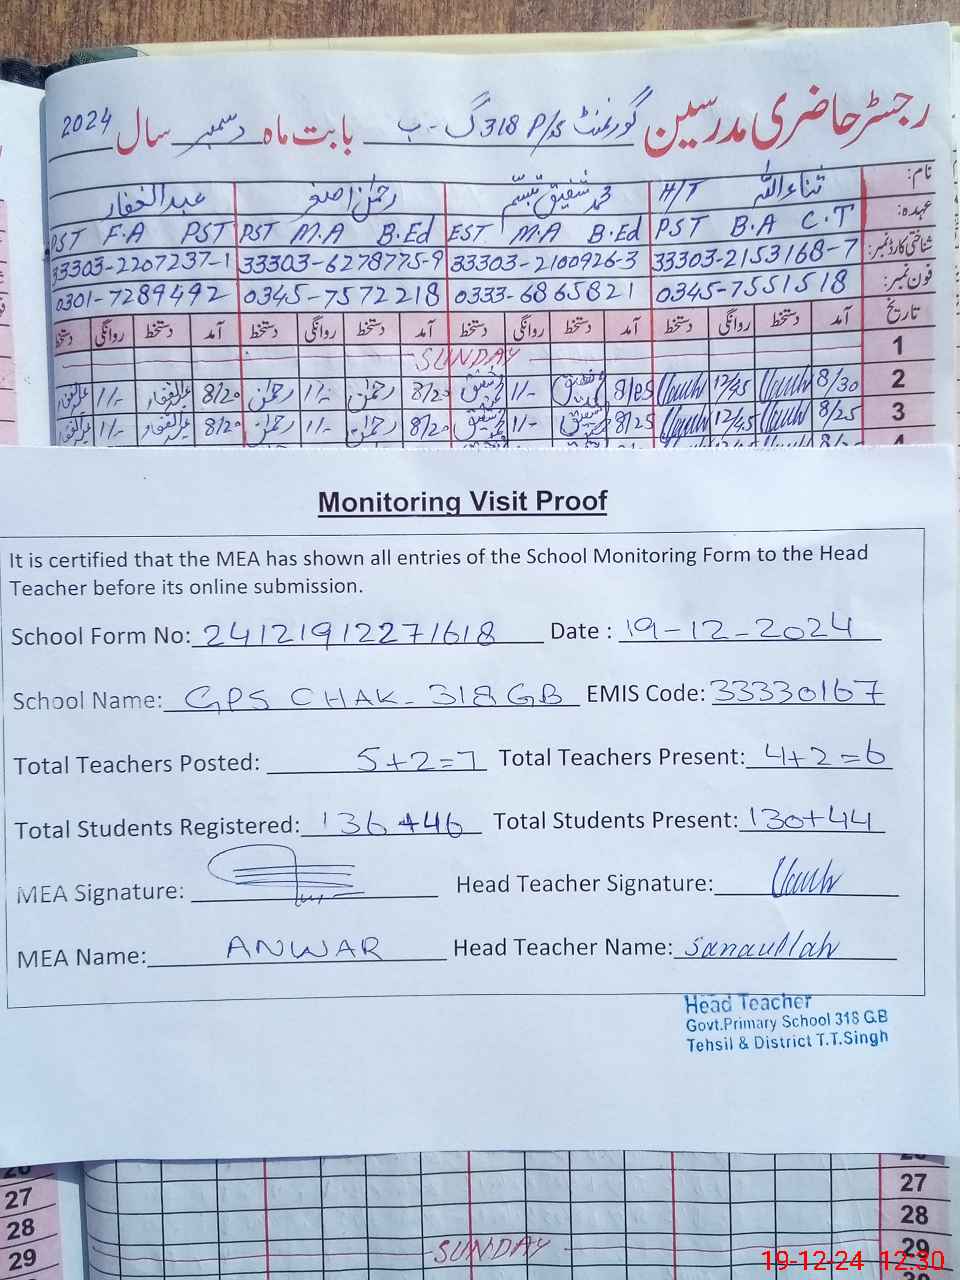 رجسٹر حاضری مدرسین گورنمنٹ P/S 318 گ - ب بابت ماہ دسمبر سال 2024
نام: ثناء اللہ H/T محمد شفیق تبسم رحمٰن اصغر عبدالغفار
عہدہ: PST B.A C.T EST M.A B.Ed PST M.A B.Ed PST F.A PST
شناختی کارڈ نمبر: 33303-2153168-7 33303-2100926-3 33303-6278775-9 33303-2207237-1
فون نمبر: 0345-7551518 0333-6865821 0345-7572218 0301-7289492
تاریخ آمد دستخط روانگی دستخط آمد دستخط روانگی دستخط آمد دستخط روانگی دستخط آمد دستخط روانگی دستخط
1 SUNDAY
2 8/30 12/45 8/25 شفیق 1/- شفیق 8/20 رحمٰن 1/- رحمٰن 8/20 عبدالغفار 1/- عبدالغفار
3 8/25 12/45 8/25 شفیق 1/- شفیق 8/20 رحمٰن 1/- رحمٰن 8/20 عبدالغفار 1/- عبدالغفار
Monitoring Visit Proof
It is certified that the MEA has shown all entries of the School Monitoring Form to the Head
Teacher before its online submission.
School Form No: 24121912271618 Date : 19-12-2024
School Name: GPS CHAK- 318 GB EMIS Code: 33330167
Total Teachers Posted: 5+2=7 Total Teachers Present: 4+2=6
Total Students Registered: 136+46 Total Students Present: 130+44
MEA Signature: Head Teacher Signature:
MEA Name: ANWAR Head Teacher Name: Sanaullah
Head Teacher
Govt.Primary School 318 G.B
Tehsil & District T.T.Singh
27 27
28 28
29 SUNDAY 29
19-12-24 12:30